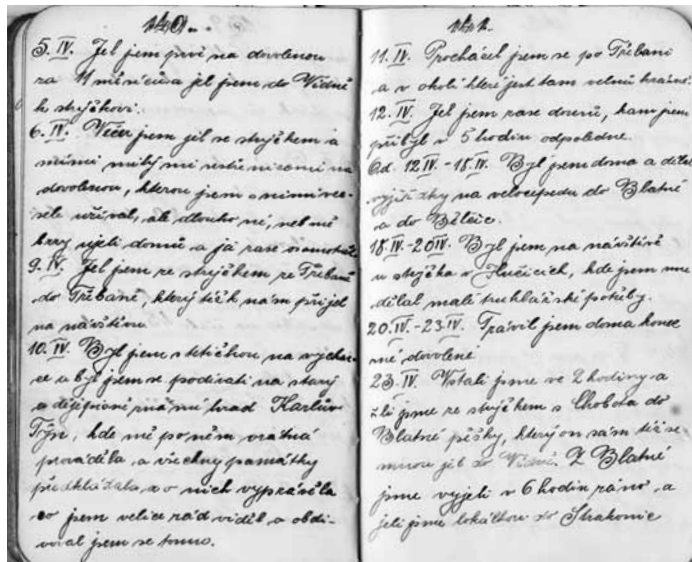 140.
5. IV. Jel jsem prvi na dovolenou
za 11 měsíců a jel jsem do Vídně
k strýčkovi.
6. IV. Večer jsem jel se strýčkem a
s nimi na
dovolenou, kterou jsem s nimi ve-
sele užíval, ale dlouho ne, neb mě
brzy ujeli domů a já zase osamotněl
9. IV. Jel jsem ze strýčkem ze Třebaně
do Třebaně, který též k nám přijel
na návštěvu
10. IV. Byl jsem s tetičkou na vycház-
ce a byl jsem se podívati na starý
a dějepisně známý hrad Karlův
Týn, kde mě po něm vrátná
prováděla a všechny památky
předkládala a o nich vyprávěla
co jsem velice rád viděl a obdi-
voval jsem se tomu.
141.
11. IV. Procházel jsem se po Třebani
a v okolí které jest tam velmi krásné.
12. IV. Jel jsem zase domů, kam jsem
přibyl v 5 hodin odpoledne.
Od. 12 IV. - 18. IV. Byl jsem doma a dělal
vyjížďky na velocipedu do Blatné
a do Bělčic.
18. IV. - 20 IV. Byl jsem na návštěvě
u strýčka v Hučicích, kde jsem mu
dělal malé truhlářské potřeby.
20. IV. - 23. IV. Trávil jsem doma konec
mé dovolené
23. IV. Vstali jsme ve 2 hodiny a
šli jsme ze strýčkem s Chobota do
Blatné pěšky, který on sám též se
mnou jel do Vídně. Z Blatné
jsme vyjeli v 6 hodin ráno, a
jeli jsme lokálkou do Strakonic